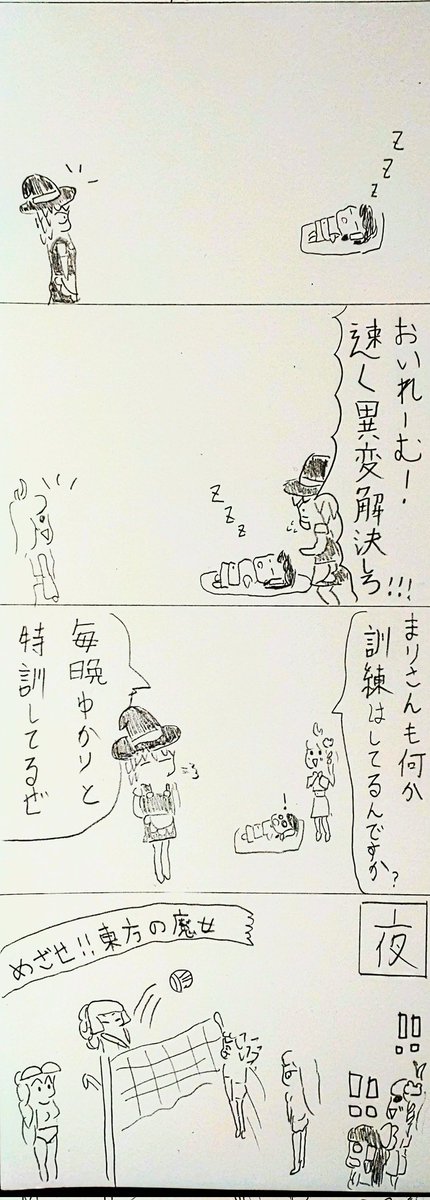 Z
Z
Z
おいれーむ!
速く異変解決しろ!!!
Z
Z
Z
まりさんも何か
訓練はしてるんですか?
!
毎晩ゆかりと
特訓してるぜ
夜
めざせ!!東方の魔女
!!
!!